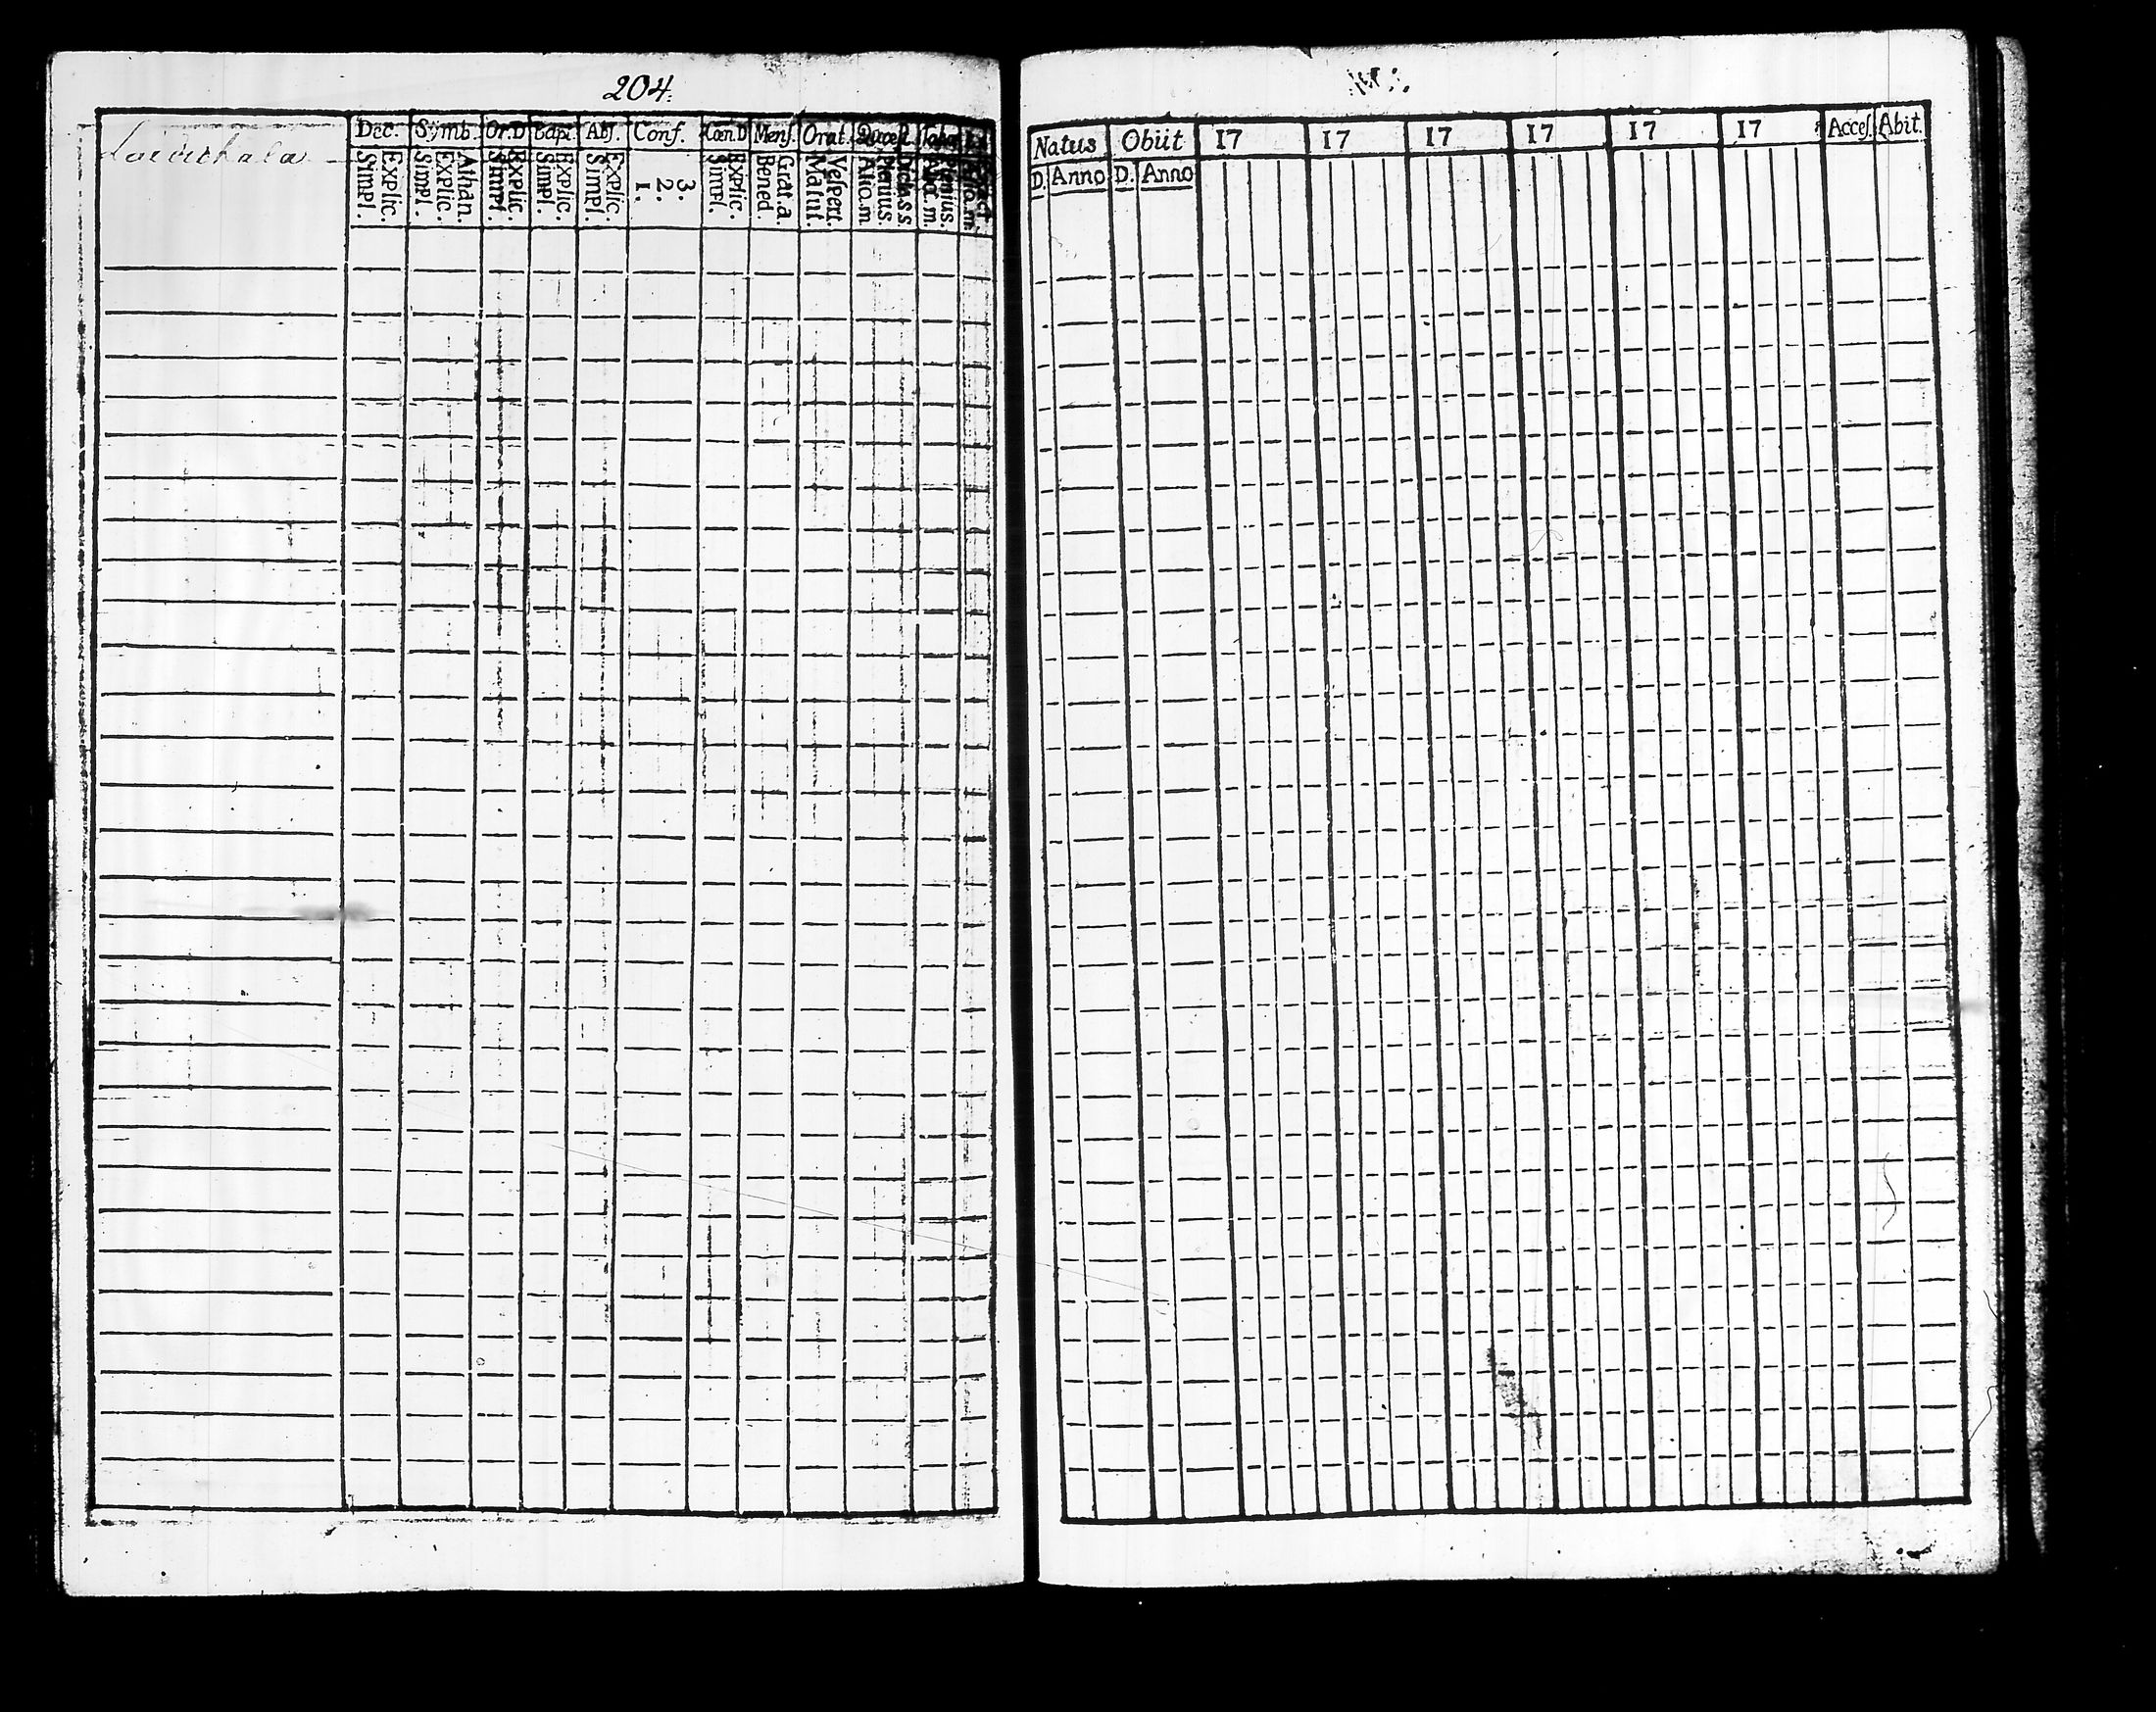 204.
Dec. Symb. Or.D Bapt. Abs. Conf. Cœn.D Mens. Orat. Quæst. Tabul.
Explic. Simpl. Athan. Explic. Simpl. Explic. Simpl. Explic. Simpl. Explic. Simpl. 3. 2. 1. Explic. Simpl. Grat.a. Bened. Vespert. Matut. Dicta.s.s. Plenius Aliq.m Plenius. Aliq.m.
Natus Obiit 17 17 17 17 17 17 Acces. Abit.
D. Anno D. Anno